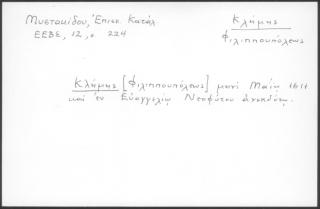 Μυστακίδου, Ἐπισκ. Κατάλ
ΕΕΒΣ, 12, σ 224
Κλήμης
Φιλιππουπόλεως
Κλήμης [Φιλιππουπόλεως] μηνὶ Μαΐῳ 1611
καὶ ἐν Εὐαγγελίῳ Νεοφύτου ἀνεκδότῳ.